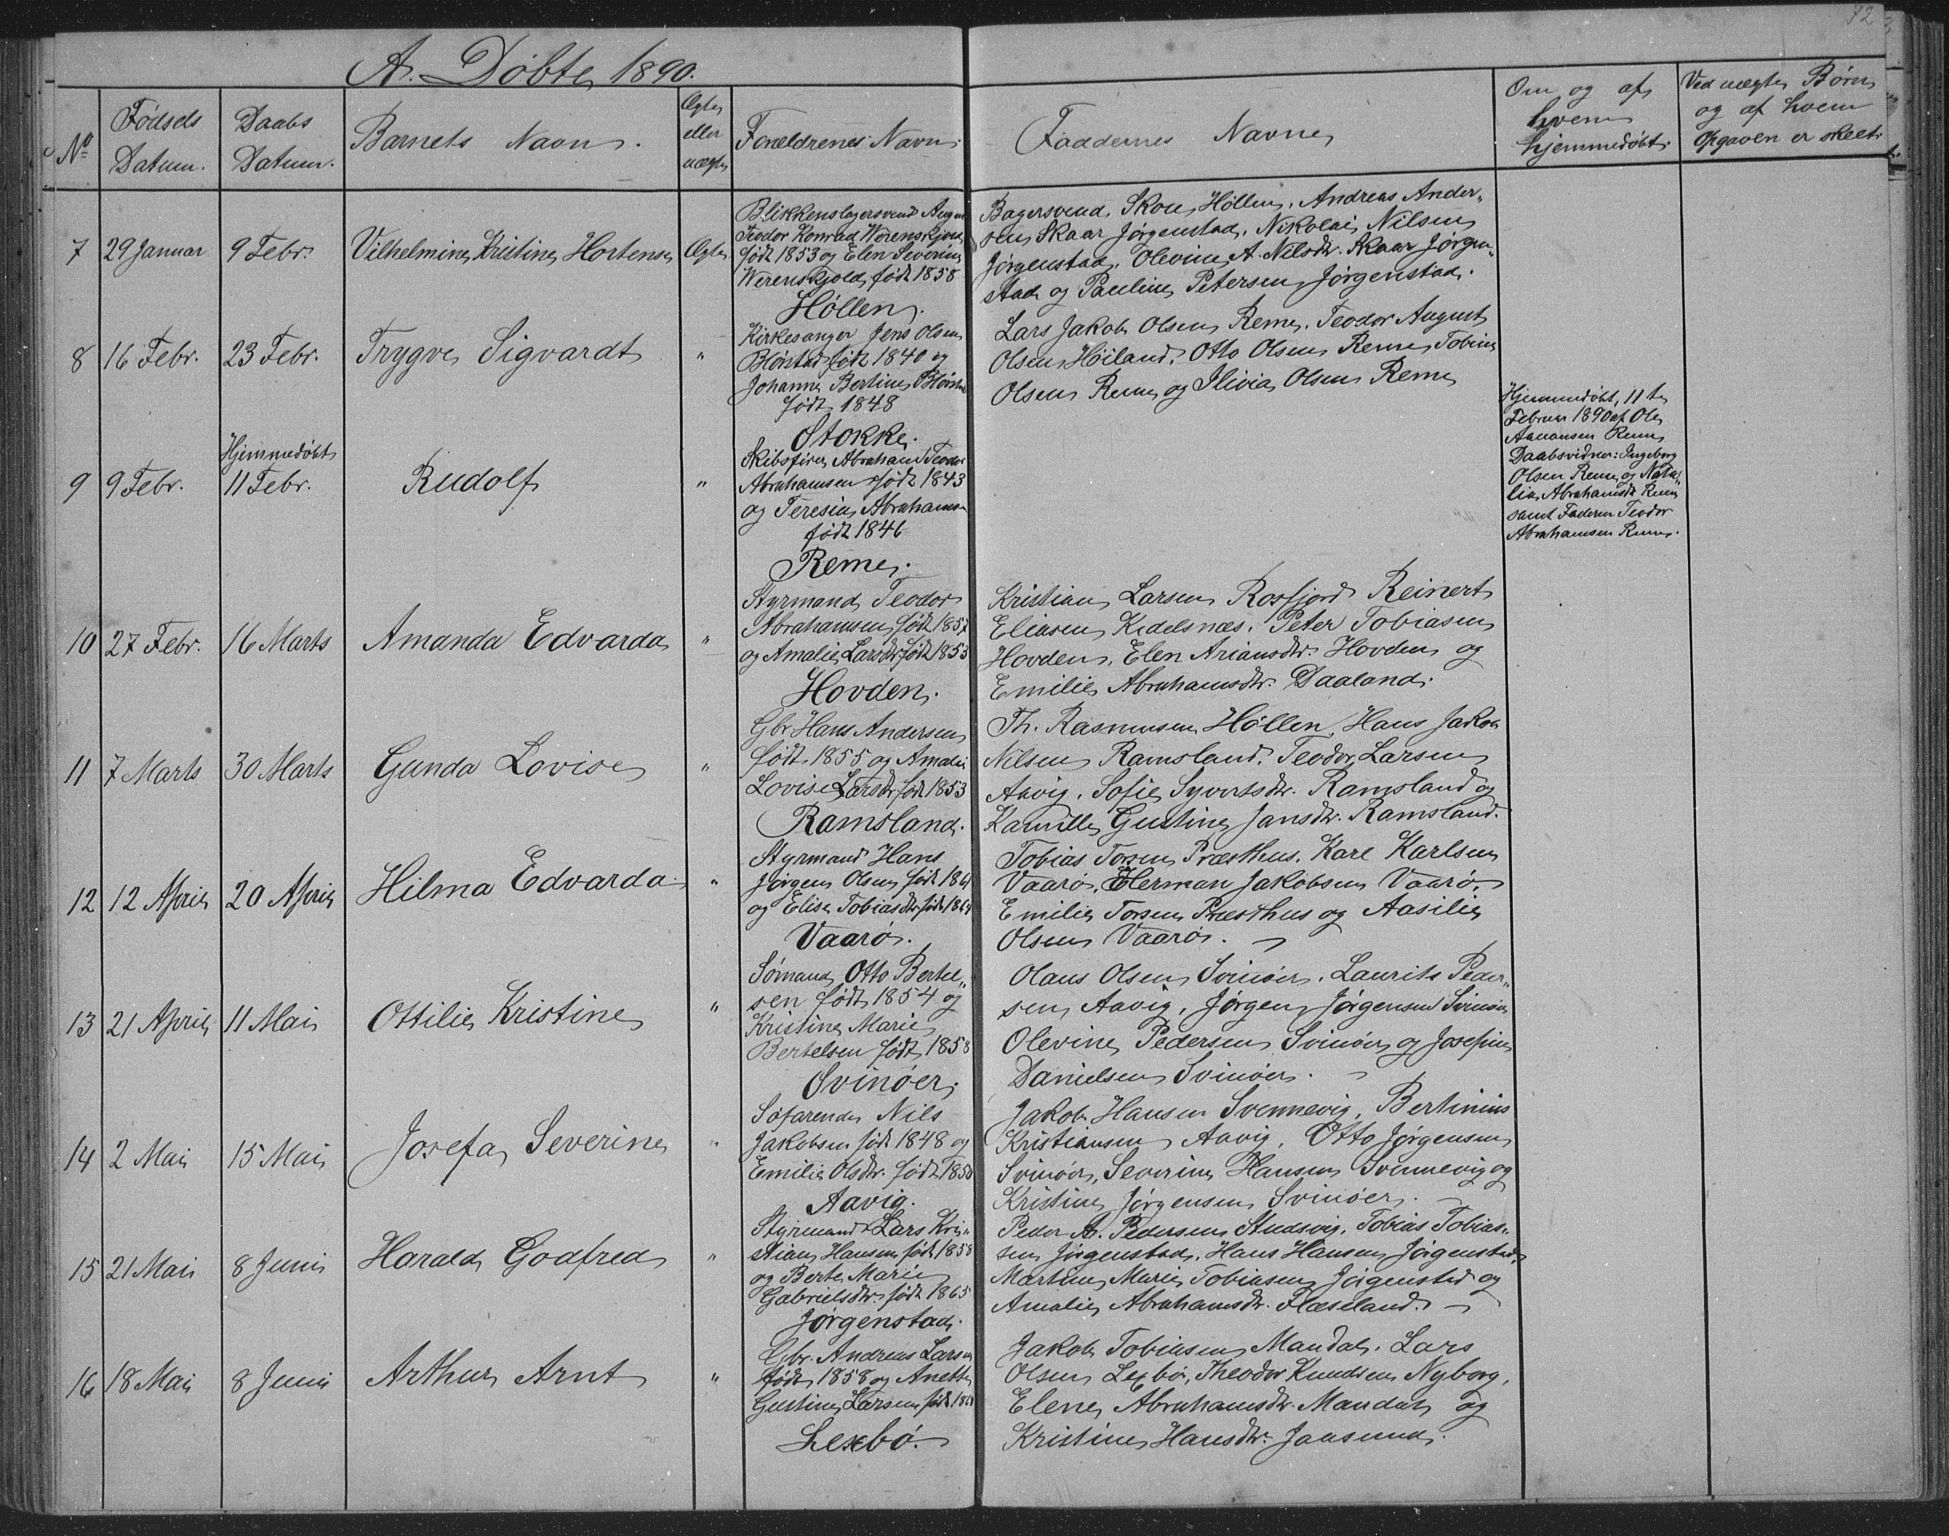 92
A. Døbte 1890.
No
Fødsels Datum.
Daabs Datum.
Barnets Navn.
Ægte eller uægte
Forældrenes Navn.
Faddernes Navne
Om og af hvem hjemmedøbt.
Ved uægte Børn og af hvem Opgaven er skeet.
7 29 Januar 9 Febr. Vilhelmine Kristine Hortense Ægte
Blikkenslagersvend August
Teodor Konrad Werenskjold
født 1853 og Elen Severine
Werenskjold født 1858
Høllen.
Bagersvend Skou Høllen, Andreas Ander-
sen Skaar Jørgenstad, Nikolai Nilsen
Jørgenstad, Olevine A. Nilsdr. Skaar Jørgen-
stad og Pauline Petersen Jørgenstad.
8 16 Febr. 23 Febr. Trygve Sigvardt "
Kirkesanger Jens Olsen
Blørstad født 1840 og
Johanne Bertine Blørstad
født 1848
Stokke.
Lars Jakob Olsen Reme, Teodor August
Olsen Høiland, Otto Olsen Reme, Tobias
Olsen Reme og Olivia Olsen Reme
9 9 Febr. Hjemmedøbt
11 Febr. Rudolf "
Skibsfører Abraham Teodor
Abrahamsen født 1843
og Teresia Abrahamsen
født 1846
Reme.
Hjemmedøbt 11te
Februar 1890 af Ole
Aanonsen Reme
Daabsvidner: Ingeborg
Olsen Reme og Nata-
lia Abrahamsdr. Reme
samt Faderen Teodor
Abrahamsen Reme.
10 27 Febr. 16 Marts Amanda Edvarda "
Styrmand Teodor
Abrahamsen født 1857
og Amalie Larsdr. født 1853
Hovden.
Kristian Larsen Rosfjord Reinert
Eliasen Kedelsnæs, Peter Tobiasen
Hovden, Elen Ariansdr. Hovden og
Emilie Abrahamsdtr. Daaland.
11 7 Marts 30 Marts Gunda Lovise "
Gbr. Hans Andersen
født 1855 og Amalie
Lovise Larsdr. født 1853
Ramsland.
Th. Rasmussen Høllen, Hans Jakob
Nilsen Ramsland, Teodor Larsen
Aavig, Sofie Syvertsdtr. Ramsland og
Kamille Gustine Jansdr. Ramsland.
12 12 April 20 April Hilma Edvarda "
Styrmand Hans
Jørgen Olsen født 1861
og Elise Tobiasdtr. født 1864
Vaarø.
Tobias Torsen Præsthus, Karl Karlsen
Vaarø, Herman Jakobsen Vaarø,
Emilie Torsen Præsthus og Aasilie
Olsen Vaarø.
13 21 April 11 Mai Ottilie Kristine "
Sømand Otto Bertel-
sen født 1854 og
Kristine Marie
Bertelsen født 1858
Svinøer.
Olaus Olsen Svinøer, Laurits Peder-
sen Aavig, Jørgen Jørgensen Svinøer
Olevine Pedersen Svinøer og Josefine
Danielsen Svinøer.
14 2 Mai 15 Mai Josefa Severine "
Søfarende Nils
Jakobsen født 1848 og
Emilie Olsdtr. født 1850
Aavig.
Jakob Hansen Svennevig, Bertinius
Kristiansen Aavig, Otto Jørgensen
Svinøer, Severine Hansen Svennevig og
Kristine Jørgensen Svinøer.
15 21 Mai 8 Juni Harald Godfred "
Styrmand Lars Kri-
stian Hansen født 1858
og Berte Marie
Gabrielsdtr. født 1865
Jørgenstad.
Peder A. Pedersen Studsvig, Tobias Tobias-
sen Jørgenstad, Hans Hansen Jørgenstad,
Martine Marie Tobiasen Jørgenstad og
Amalie Abrahamsdr. Flæseland.
16 18 Mai 8 Juni Arthur Arnt "
Gbr. Andreas Larsen
født 1858 og Anette
Gustine Larsen født 1861
Lexbø.
Jakob Tobiasen Mandal, Lars
Olsen Lexbø, Theodor Knudsen Nyborg,
Elene Abrahamsdtr. Mandal og
Kristine Hansdtr. Jaasund.